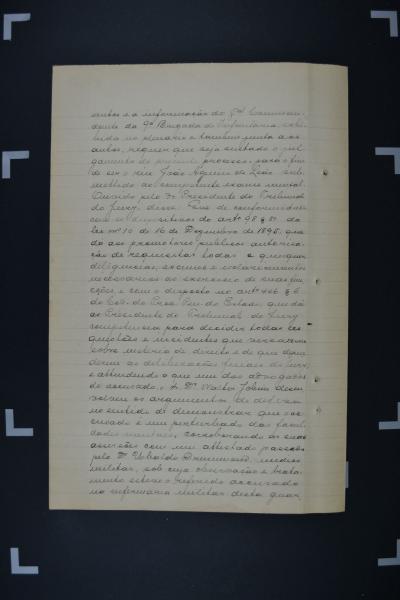 autos e a informação do Snr Comman-
dante da 9ª Brigada de Infantaria exhi-
bida no plenario e tambem junta aos
autos, requer que seja sustado o jul-
gamento do presente processo, para o fim
de ser o reu João Aquino de Leão sub-
mettido ao competente exame mental.
Ouvido pelo Dr Presidente do Tribunal
do Jury, disse: Que de conformidade
com os dispositivos do artº 98 § da
lei nº 10 de 16 de Dezembro de 1895, que
dá aos promotores publicos autorisa-
ção de requisitar todas e quaesquer
diligencias, exames e esclarecimentos
necessarios ao exercicio de suas fun-
cções e com o disposto no artº 466 § 6
do Cod. do Proc. Pen. do Estado, que dá
ao Presidente do Tribunal do Jury
competencia para decidir todas as
questões e incidentes que versarem
sobre materia de direito e de que depen-
derem as deliberações finaes do jury,
e attendendo a que um dos advogados
do accusado, o Dr. Walter Jobim desen-
volveu os argumentos de defesa
no sentido de demonstrar que o ac-
cusado é um perturbado das facul-
dades mentaes, corroborando as suas
asserções com um attestado passado
pelo Dr Ubaldo Drummond, medico
militar, sob cuja observação e trata-
mento esteve o referido accusado
na enfermaria militar desta guar